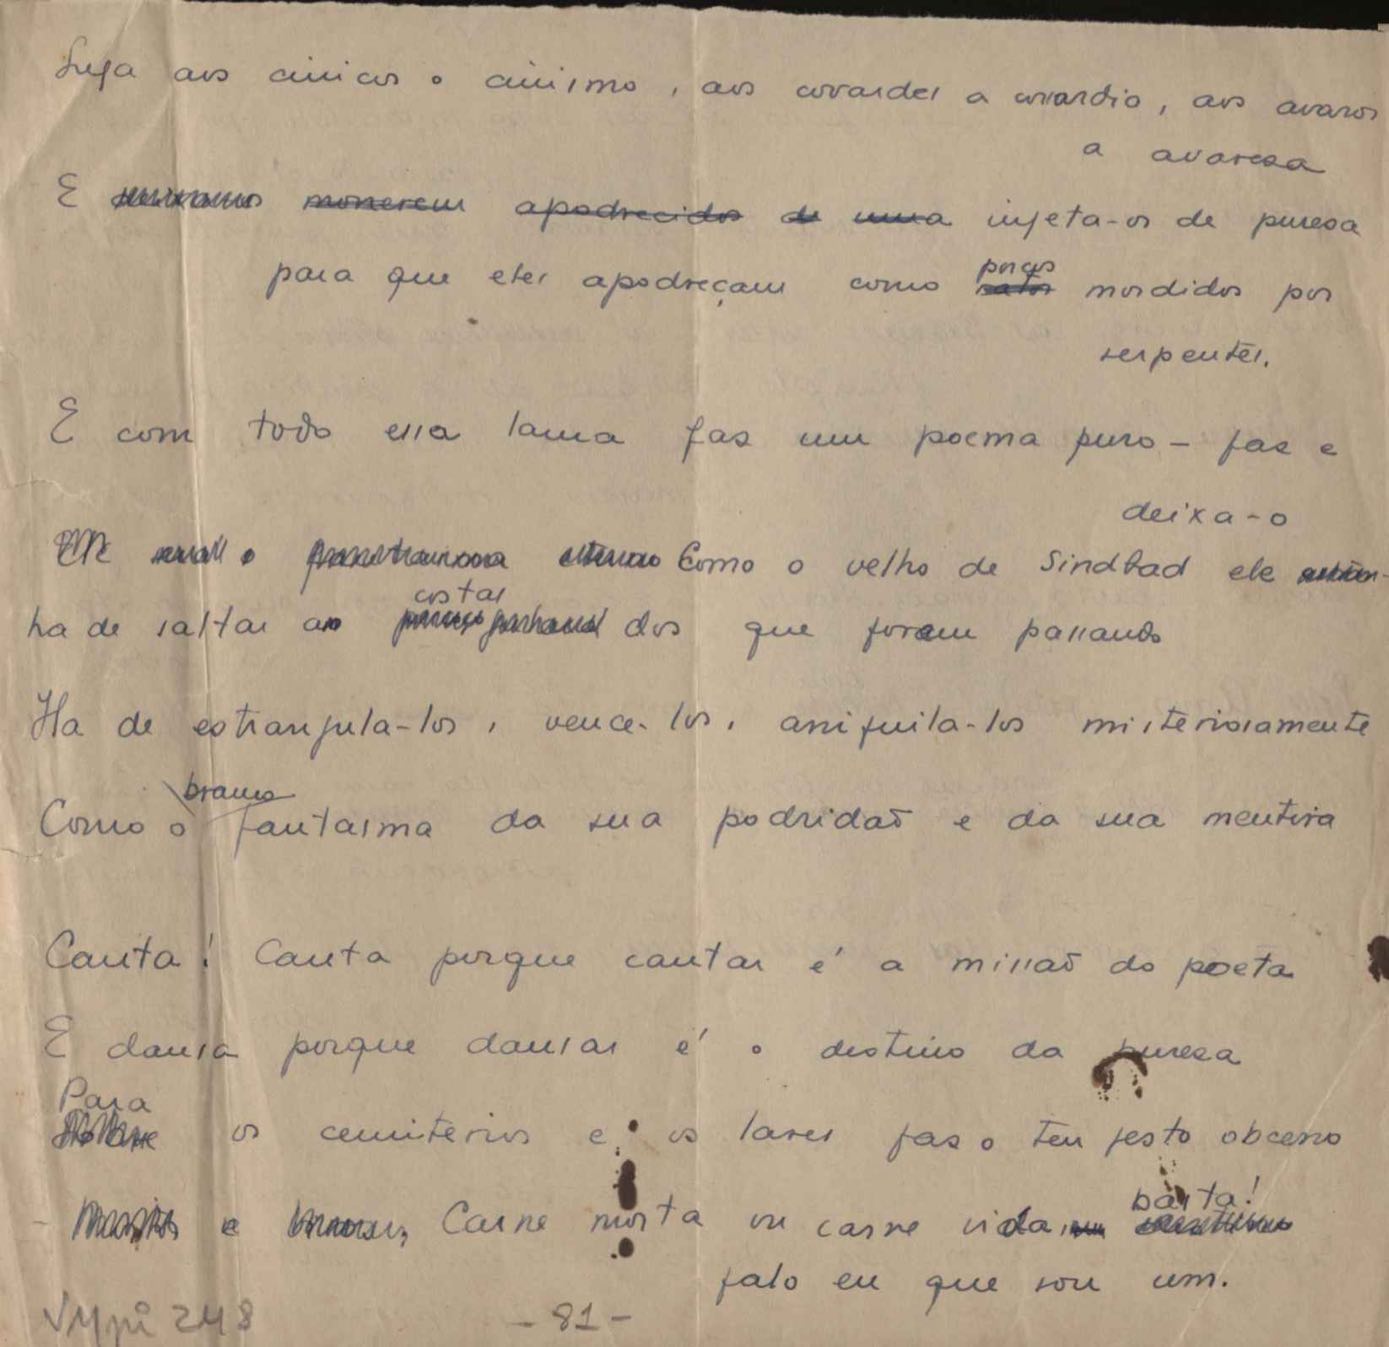 Suja aos cinicos o cinismo, aos covardes a covardia, aos avaros
a avareza
E morrerem apodrecidos de uma injeta-os de pureza
para que eles apodreçam como ratos porcos mordidos por
serpentes.
E com toda essa lama fas um poema puro - fas e
deixa-o
Como o velho de Sindbad ele
ha de saltar ao costas dos que forem passando
Ha de estrangula-los, vence-los, aniquila-los misteriosamente
Como o branco fantasma da sua podridaõ e da sua mentira
Canta! Canta porque cantar é a missaõ do poeta
E dansa porque dansar é o destino da pureza
Para os cemiterios e os lares fas o teu gesto obceno
e Carne morta ou carne vida, basta!
falo eu que sou um.
VMpi 248
- 81 -